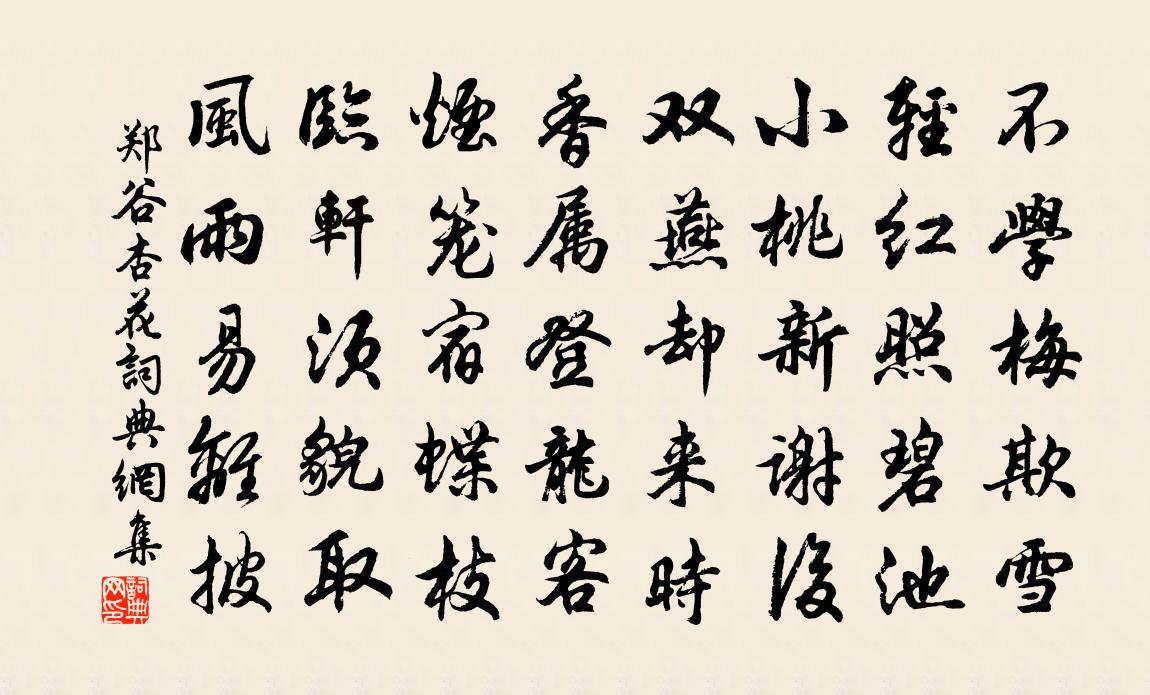 不學梅欺雪
輕红照碧池
小桃新謝後
双燕却来時
香属登龍客
煙笼宿蝶枝
臨軒須貌取
風雨易離披
郑谷杏花詞典網集
詞典網印